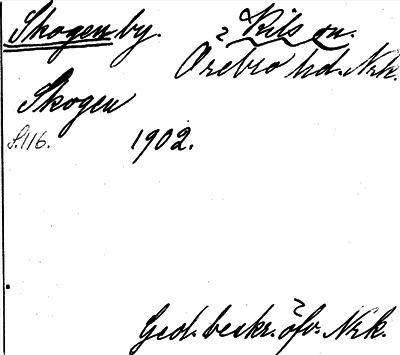 Skogen by. Kils sn.
Örebro hd. Nrk.
Skogen
S. 116. 1902.
Geol. beskr. öfv. Nrk.